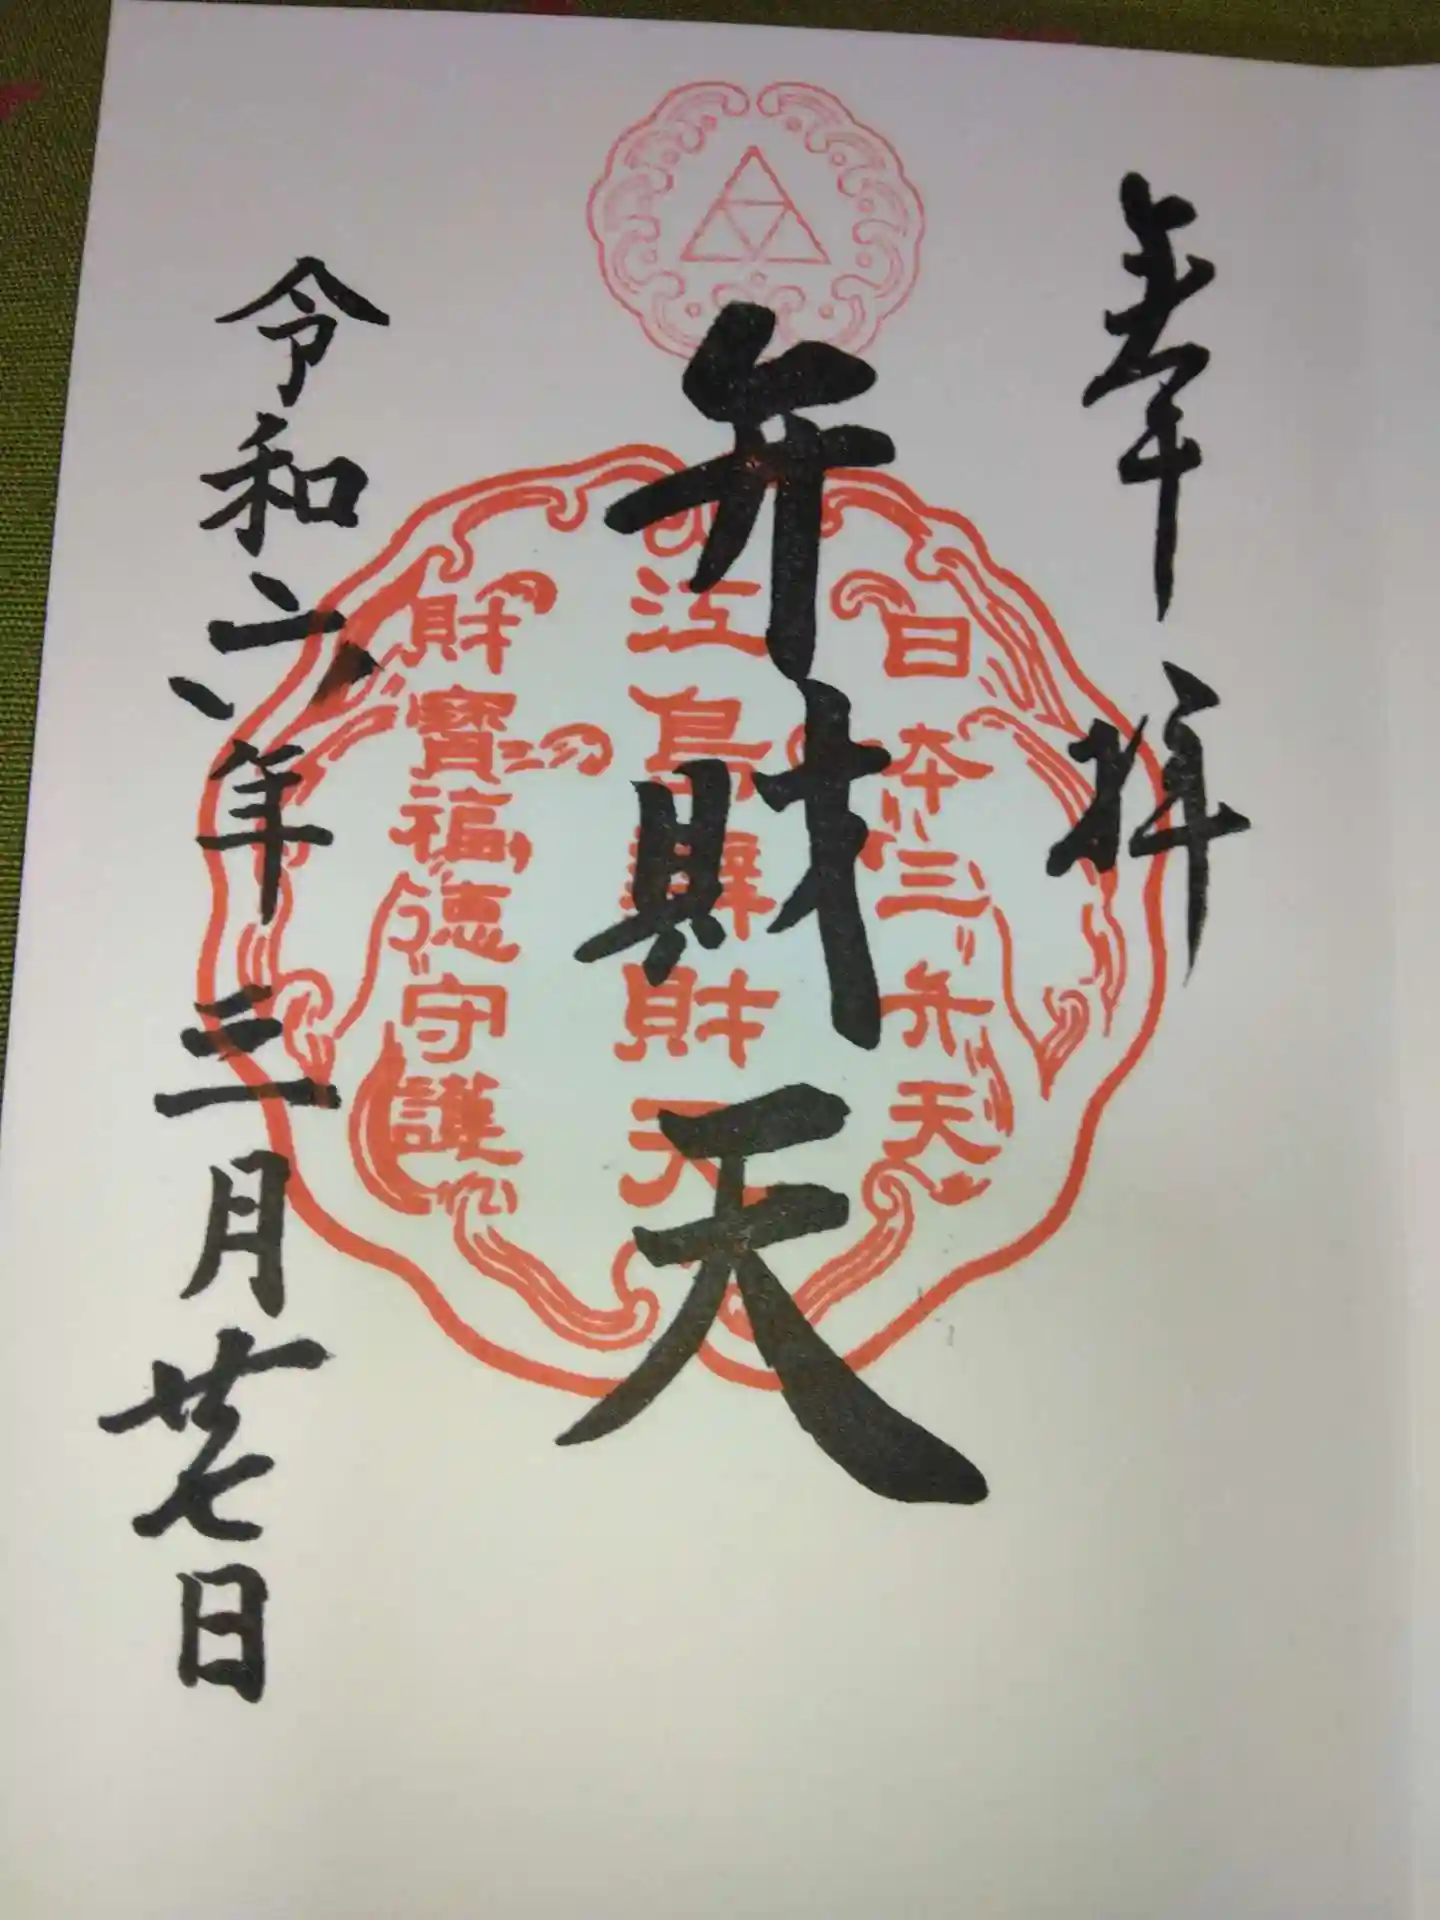 奉拝
日本三弁天
弁財天
江島辯財天
財寶福徳守護
令和六年三月廿七日